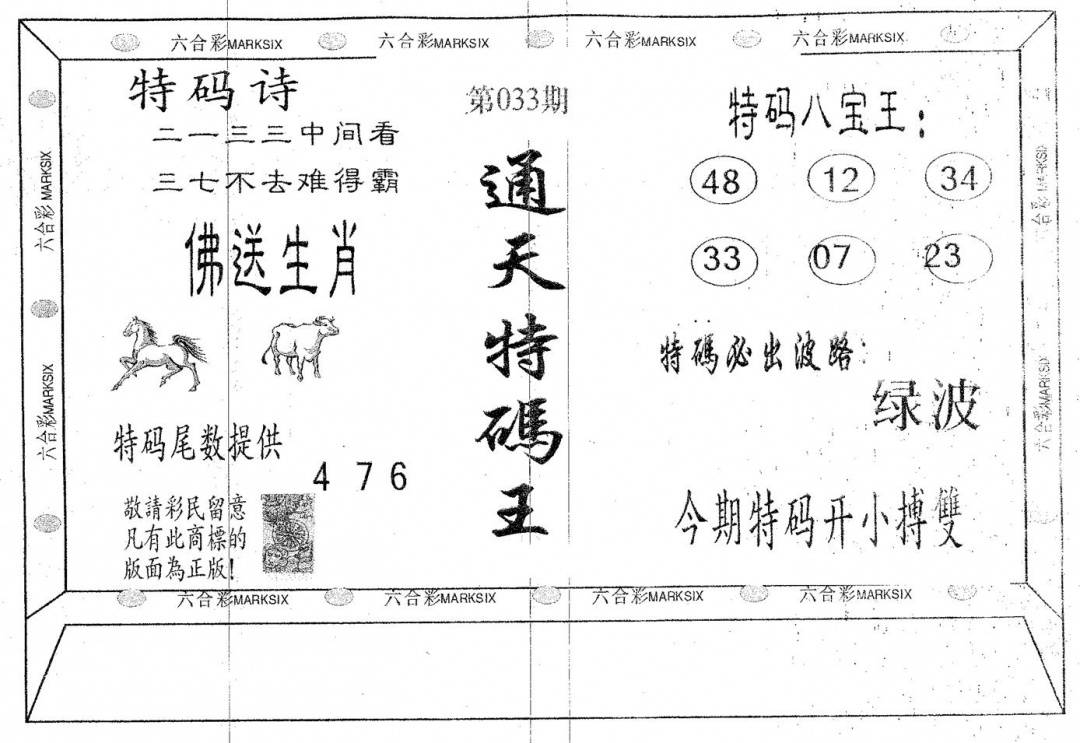 六合彩MARKSIX 六合彩MARKSIX 六合彩MARKSIX 六合彩MARKSIX
特码诗
二一三三中间看
三七不去难得霸
佛送生肖
特码尾数提供
4 7 6
敬請彩民留意
凡有此商標的
版面為正版!
第033期
通天特碼王
特码八宝王:
48 12 34
33 07 23
特碼必出波路:
绿波
今期特码开小搏雙
六合彩MARKSIX
六合彩MARKSIX
六合彩MARKSIX
六合彩MARKSIX
六合彩MARKSIX 六合彩MARKSIX 六合彩MARKSIX 六合彩MARKSIX